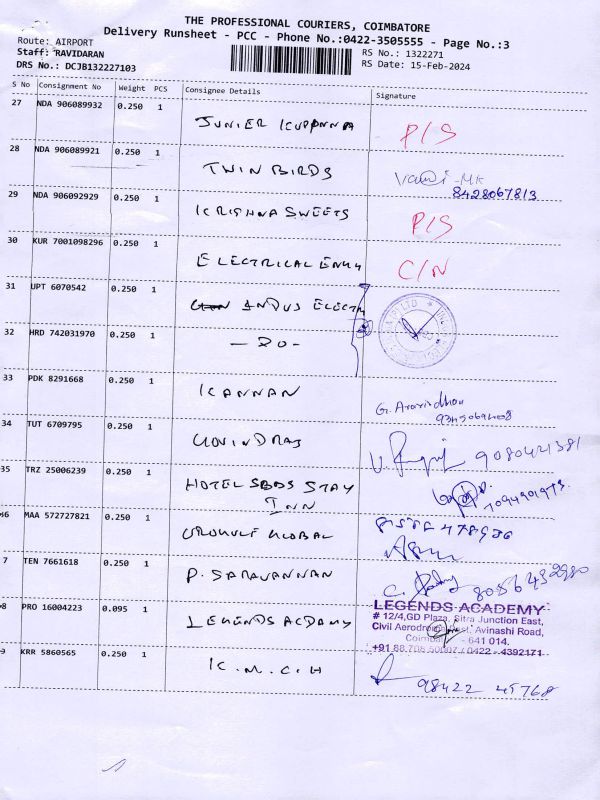 THE PROFESSIONAL COURIERS, COIMBATORE
Delivery Runsheet - PCC - Phone No.:0422-3505555 - Page No.:3
Route: AIRPORT
Staff: RAVIDARAN
DRS No.: DCJB132227103
RS No.: 1322271
RS Date: 15-Feb-2024
S No Consignment No Weight PCS Consignee Details Signature
27 NDA 906089932 0.250 1 JUNIER KUPPNNA P/S
28 NDA 906089921 0.250 1 TWIN BIRDS
8428067813
29 NDA 906092929 0.250 1 KRISHNA SWEETS P/S
30 KUR 7001098296 0.250 1 ELECTRICAL C/N
31 UPT 6070542 0.250 1 INDUS ELECTR
32 HRD 742031970 0.250 1 - DO -
33 PDK 8291668 0.250 1 KANNAN
34 TUT 6709795 0.250 1 GOVINDRAJ
35 TRZ 25006239 0.250 1 HOTEL SBDS STAY
INN
7094901973
36 MAA 572727821 0.250 1 GLOBAL
7 TEN 7661618 0.250 1 P. SARAVANNAN
8 PRO 16004223 0.095 1 LEGENDS ACDAMY
LEGENDS ACADEMY
# 12/4,GD Plaza, Sitra Junction East,
Civil Aerodrome Post, Avinashi Road,
- 641 014.
0422 - 4392171
9 KRR 5860565 0.250 1 K.M.C.H
98422 45768